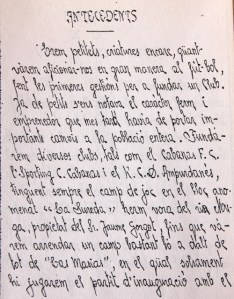 ANTECEDENTS
Erem petitets, criatures encare, quant
vàrem aficionar-nos en gran manera al fut-bol,
fent les primeres gestions per a fundar un Club.
Ja de petits s'ens notava el caracter ferm i
emprenedor que mes tard havia de portar im-
portants canvis a la població entera. Funda-
rem diversos clubs, tals com el Cabanas F. C.
l'Sporting C. Cabanas i el R. C. D. Ampurdanes,
tinguent sempre el camp de joc en el lloc ano-
menat "La Sureda" herm vora del riu Mu-
ga, propietat del Sr. Jaume Gorgot, fins que và-
rem arrendar un camp bastant bo a dalt de
tot de "Cas Marias", en el qual solsament
hi jugarem el partit d'inauguració amb el